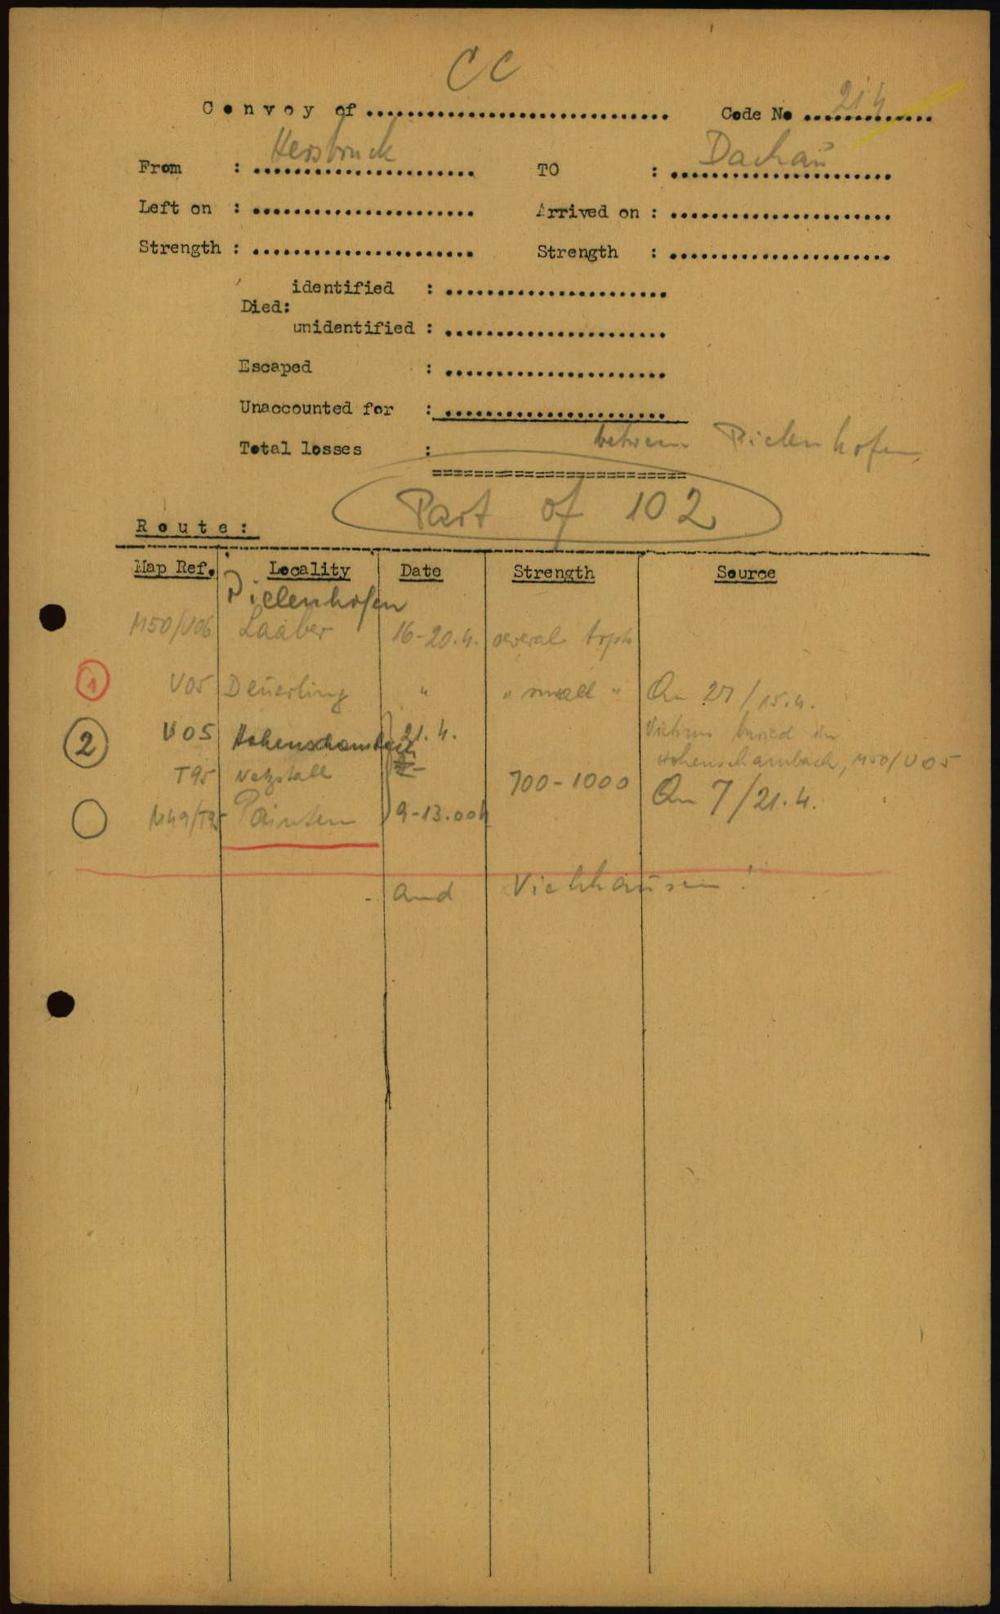 CC
Convoy of .............................. Code No ............. 214
Hersbruck Dachau
From : ...................... TO : ......................
Left on : ...................... Arrived on : ......................
Strength : ...................... Strength : ......................
identified : ......................
Died:
unidentified : ......................
Escaped : ......................
Unaccounted for : ......................
between Pielenhofen
Total losses :
==========================
Part of 102
Route:
Map Ref. Locality Date Strength Source
Pielenhofen
M50/U06 Laaber 16-20.4. several trsph
1 V05 Deuerling " " small " Qu 27/15.4.
2 V05 21.4. Victims buried in
Hohenschambach, M50/V05
T95 Netzstall 700-1000 Qu 7/21.4.
M49/T95 Painten 9-13.00h
- and Viehhausen!